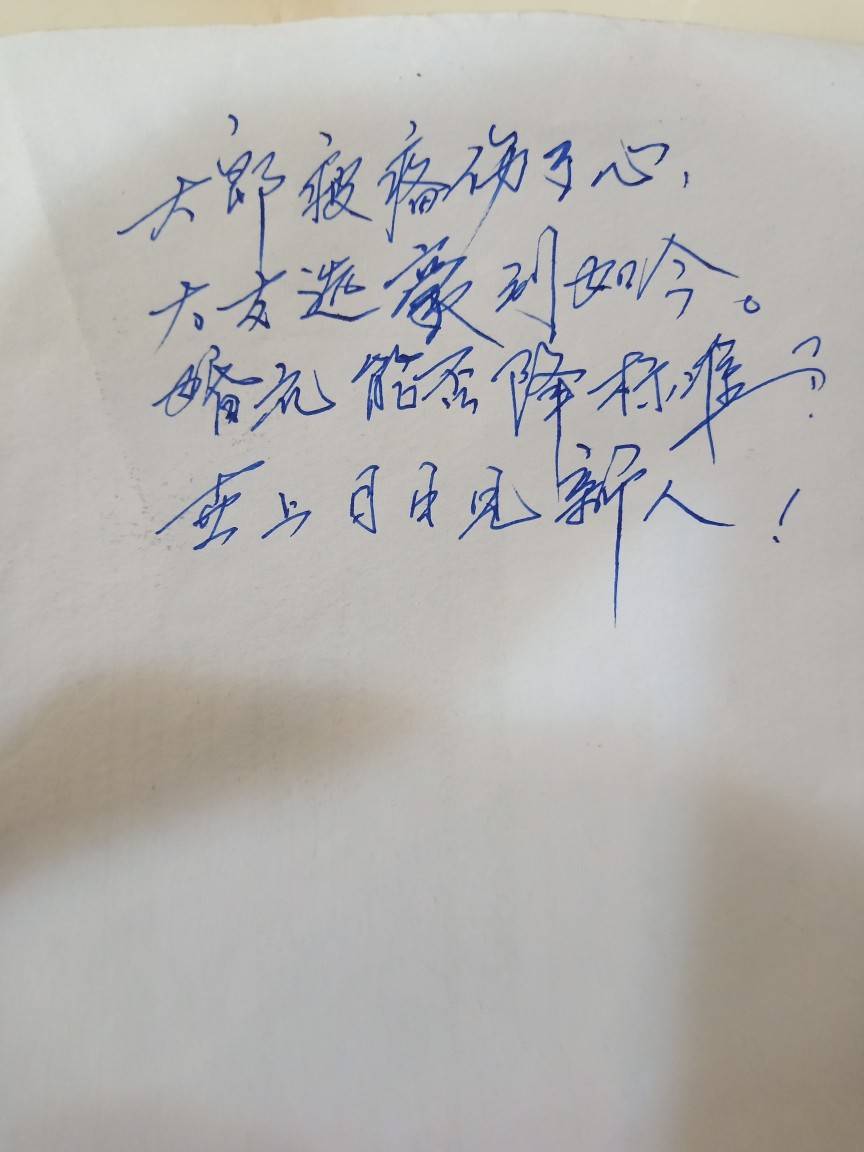 大郎疲瘩伤了心,
大女逃蒙到如今。
婚况能否降标准？
世上日日见新人！